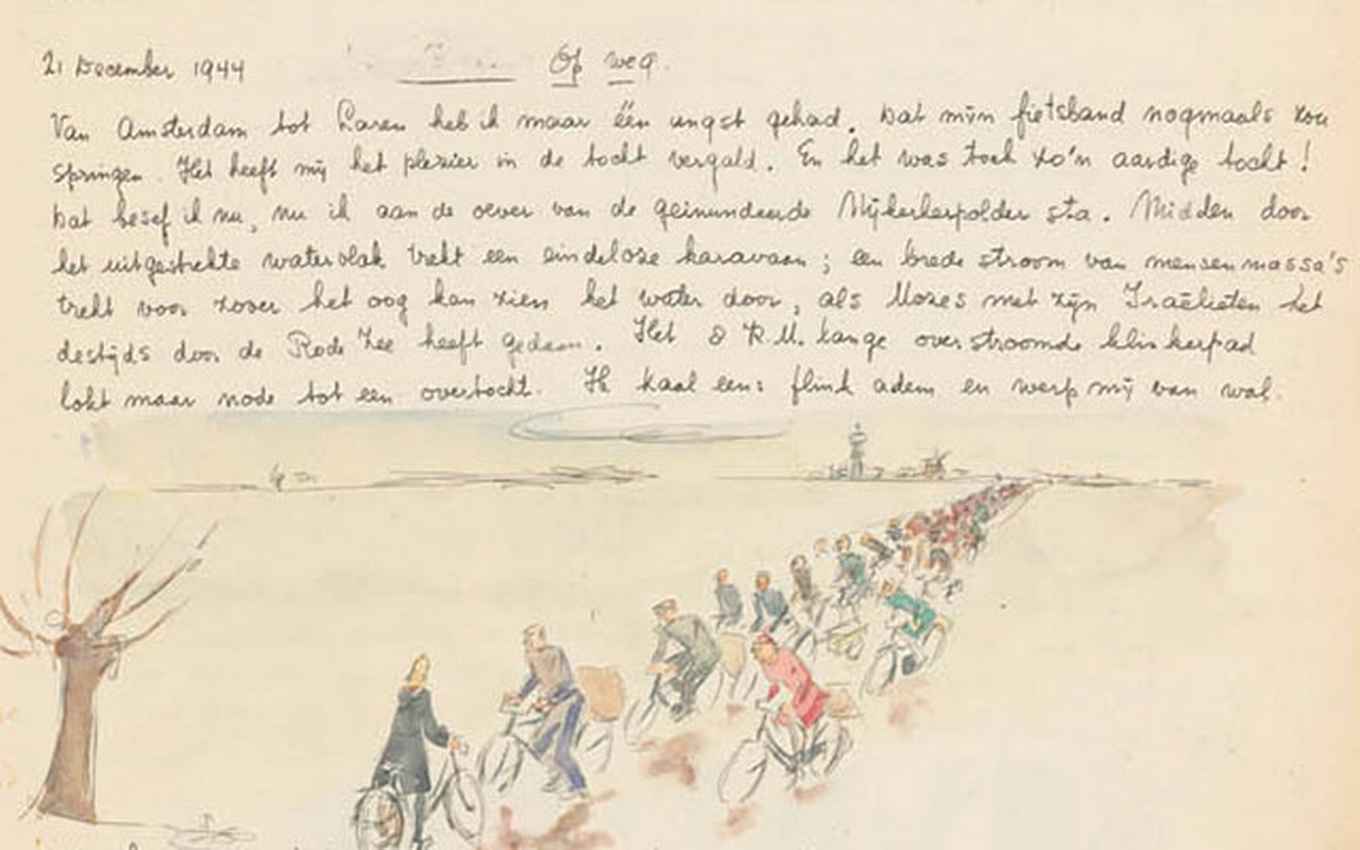 21 December 1944 Op weg.
Van Amsterdam tot Laren heb ik maar één angst gehad. Dat mijn fietsband nogmaals zou
springen. Het heeft mij het plezier in de tocht vergald. En het was toch zo'n aardige tocht!
Dat besef ik nu, nu ik aan de oever van de geinundeerde Nijkerkerpolder sta. Midden door
het uitgestrekte watervlak trekt een eindeloze karavaan; een brede stroom van mensenmassa's
trekt voor zover het oog kan zien het water door, als Mozes met zijn Israëlieten het
destijds door de Rode Zee heeft gedaan. Het 8 K.M. lange overstroomde klinkerpad
lokt maar node tot een overtocht. Ik haal een: flink adem en werp mij van wal.